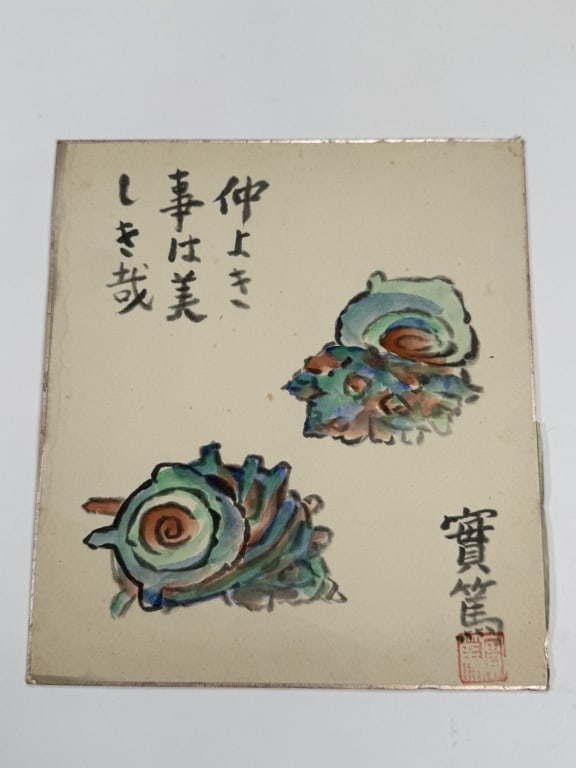 仲よき
事は美
しき哉
實篤